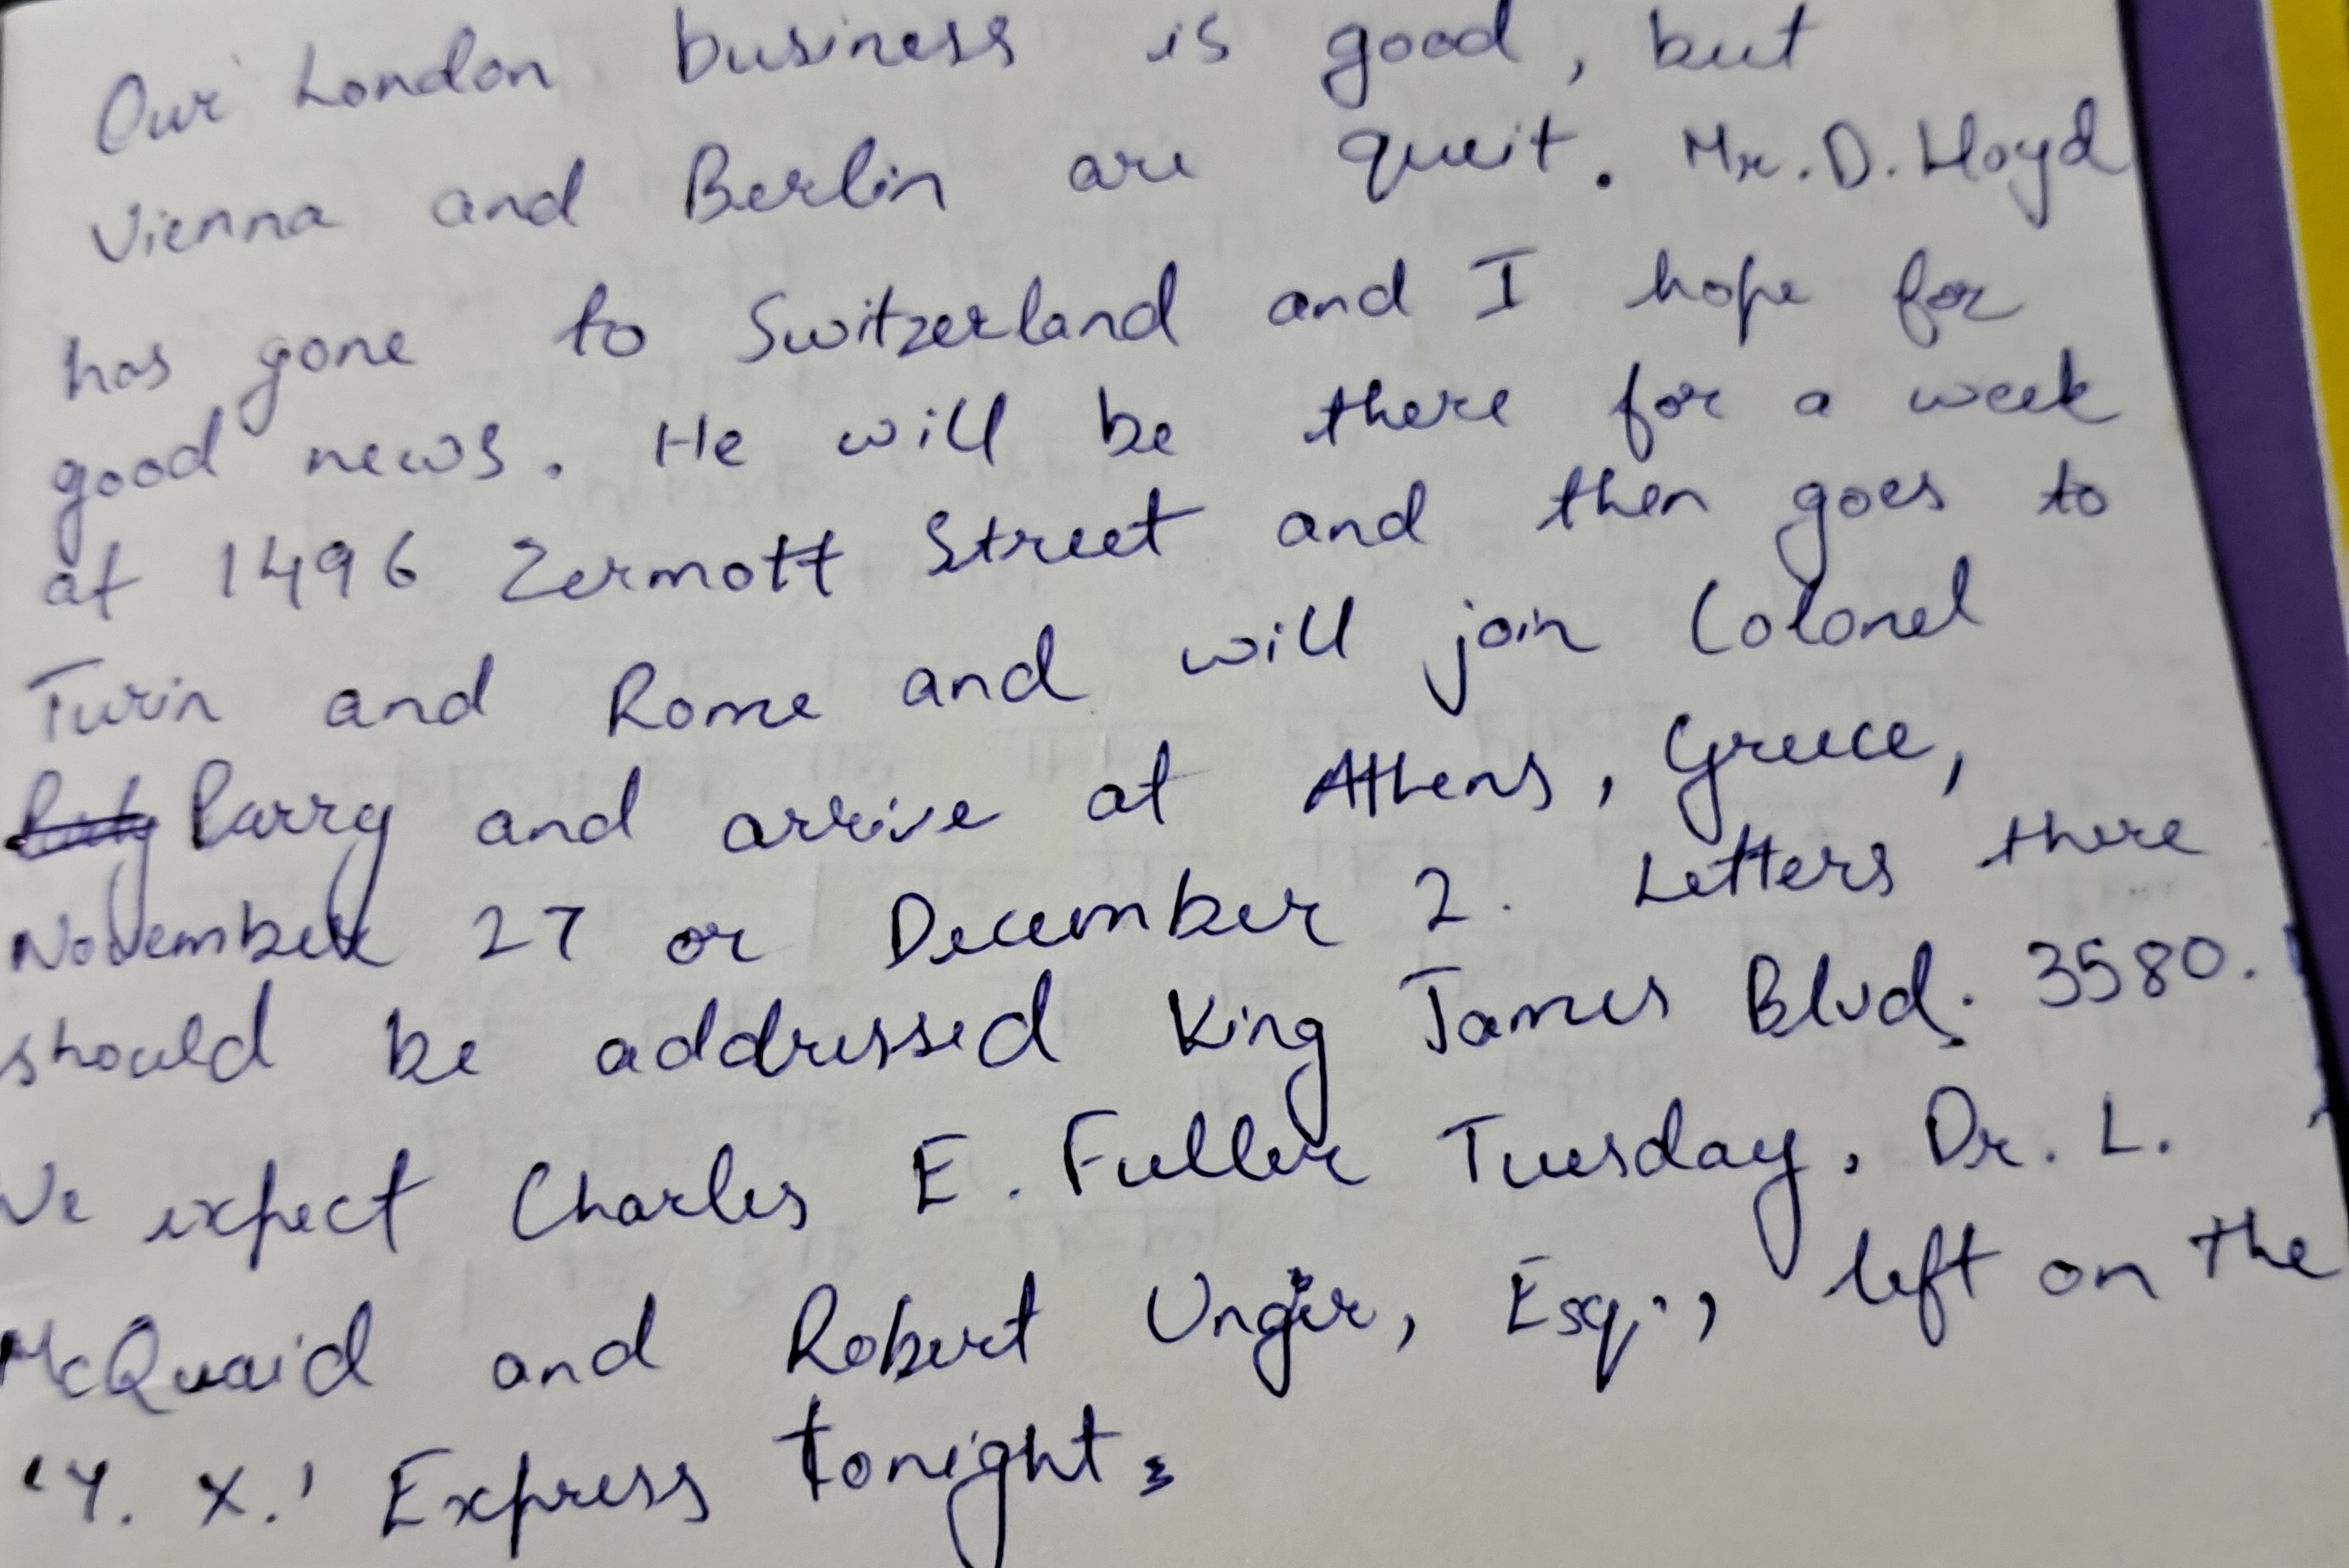 Our London business is good, but
Vienna and Berlin are queit. Mr. D. Lloyd
has gone to Switzerland and I hope for
good news. He will be there for a week
at 1496 Zermott Street and then goes to
Turin and Rome and will join Colonel
Parry and arrive at Athens, Greece,
November 27 or December 2. Letters there
should be addressed King James Blvd. 3580.
We expect Charles E. Fuller Tuesday. Dr. L.
McQuaid and Robert Unger, Esq., left on the
'Y. X.' Express tonight.